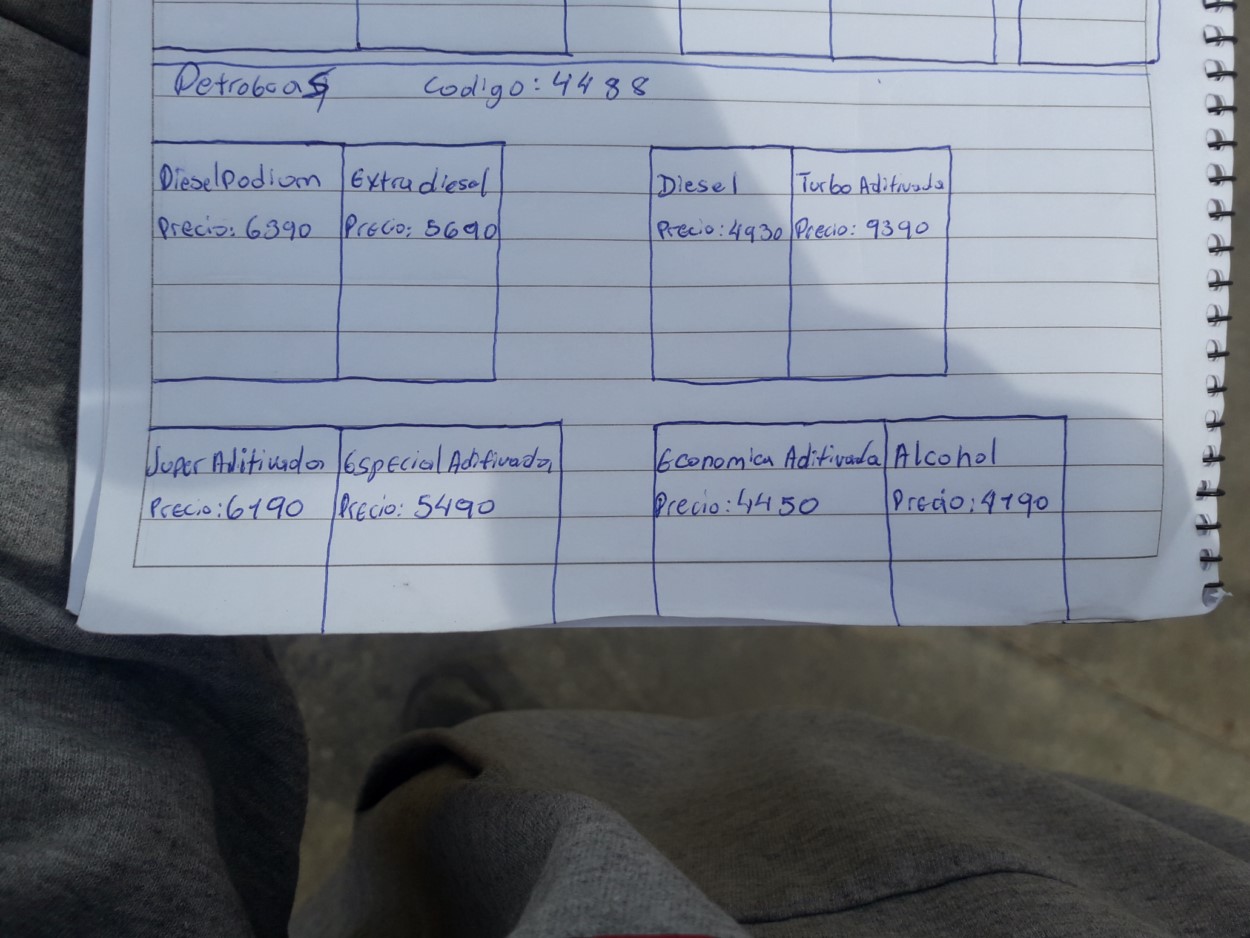 Petrobras Codigo: 4488
Diesel Podiom Extra diesel Diesel Turbo Aditivada
Precio: 6390 Precio: 5690 Precio: 4930 Precio: 9390
Super Aditivada Especial Aditivada Economica Aditivada Alcohol
Precio: 6190 Precio: 5490 Precio: 4450 Precio: 4190